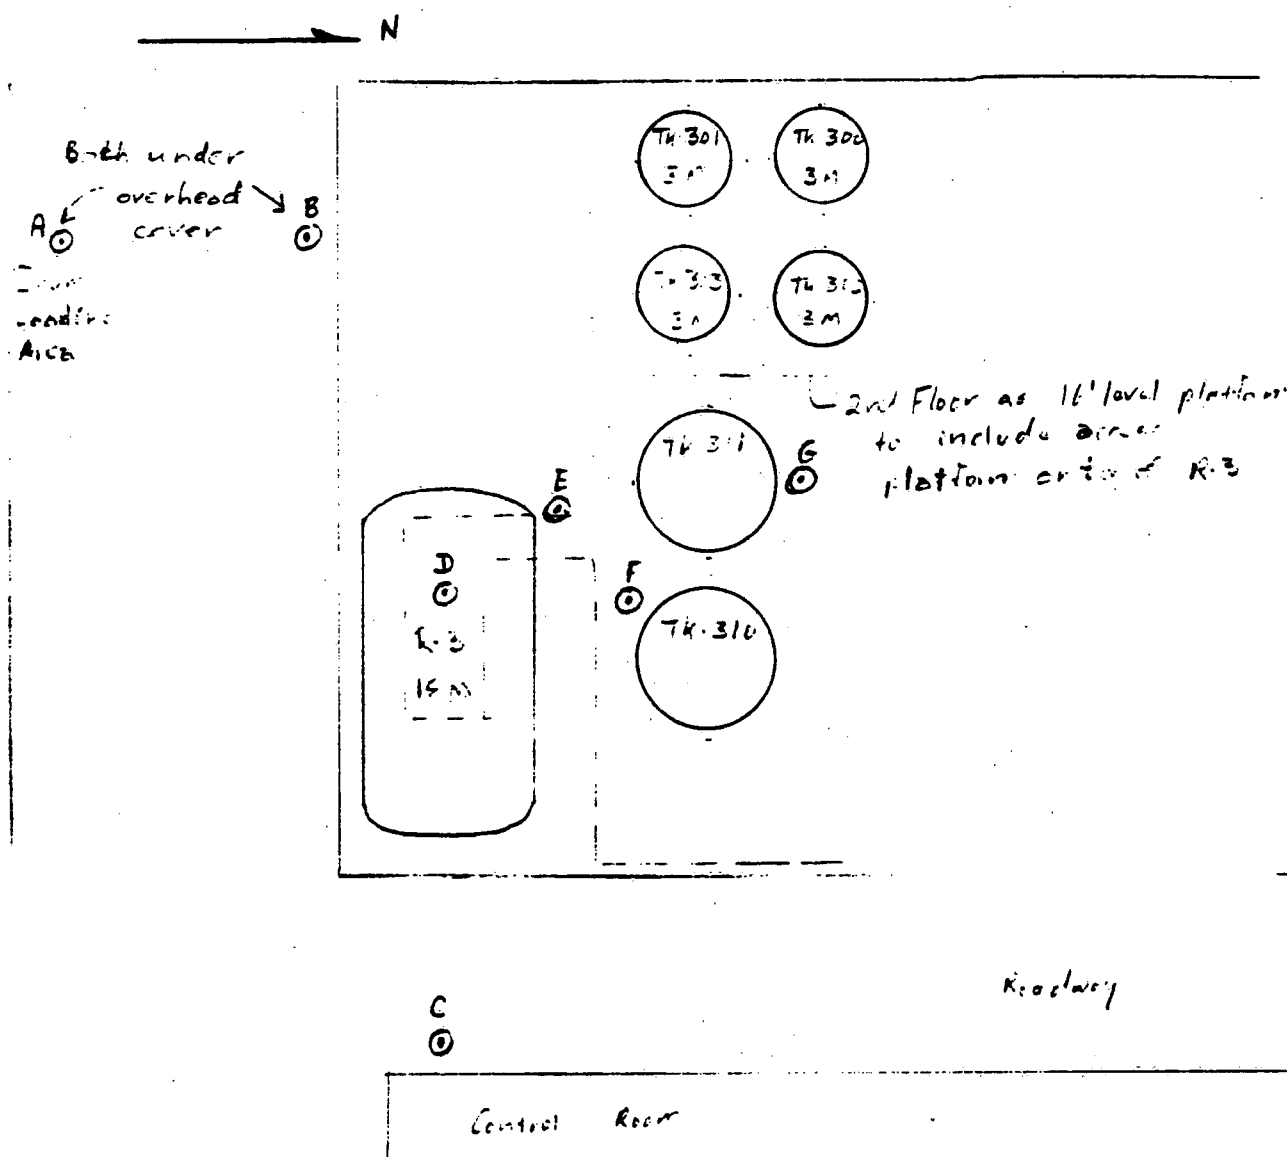 N
Both under
overhead
cover
A
B
TK 301
3 M
TK 300
3 M
3 M
3 M
Area
2nd Floor as 16' level platform
to include access
platform on top of R-3
TK 311
G
E
D
F
R-3
15 M
TK-310
C
Roadway
Control Room